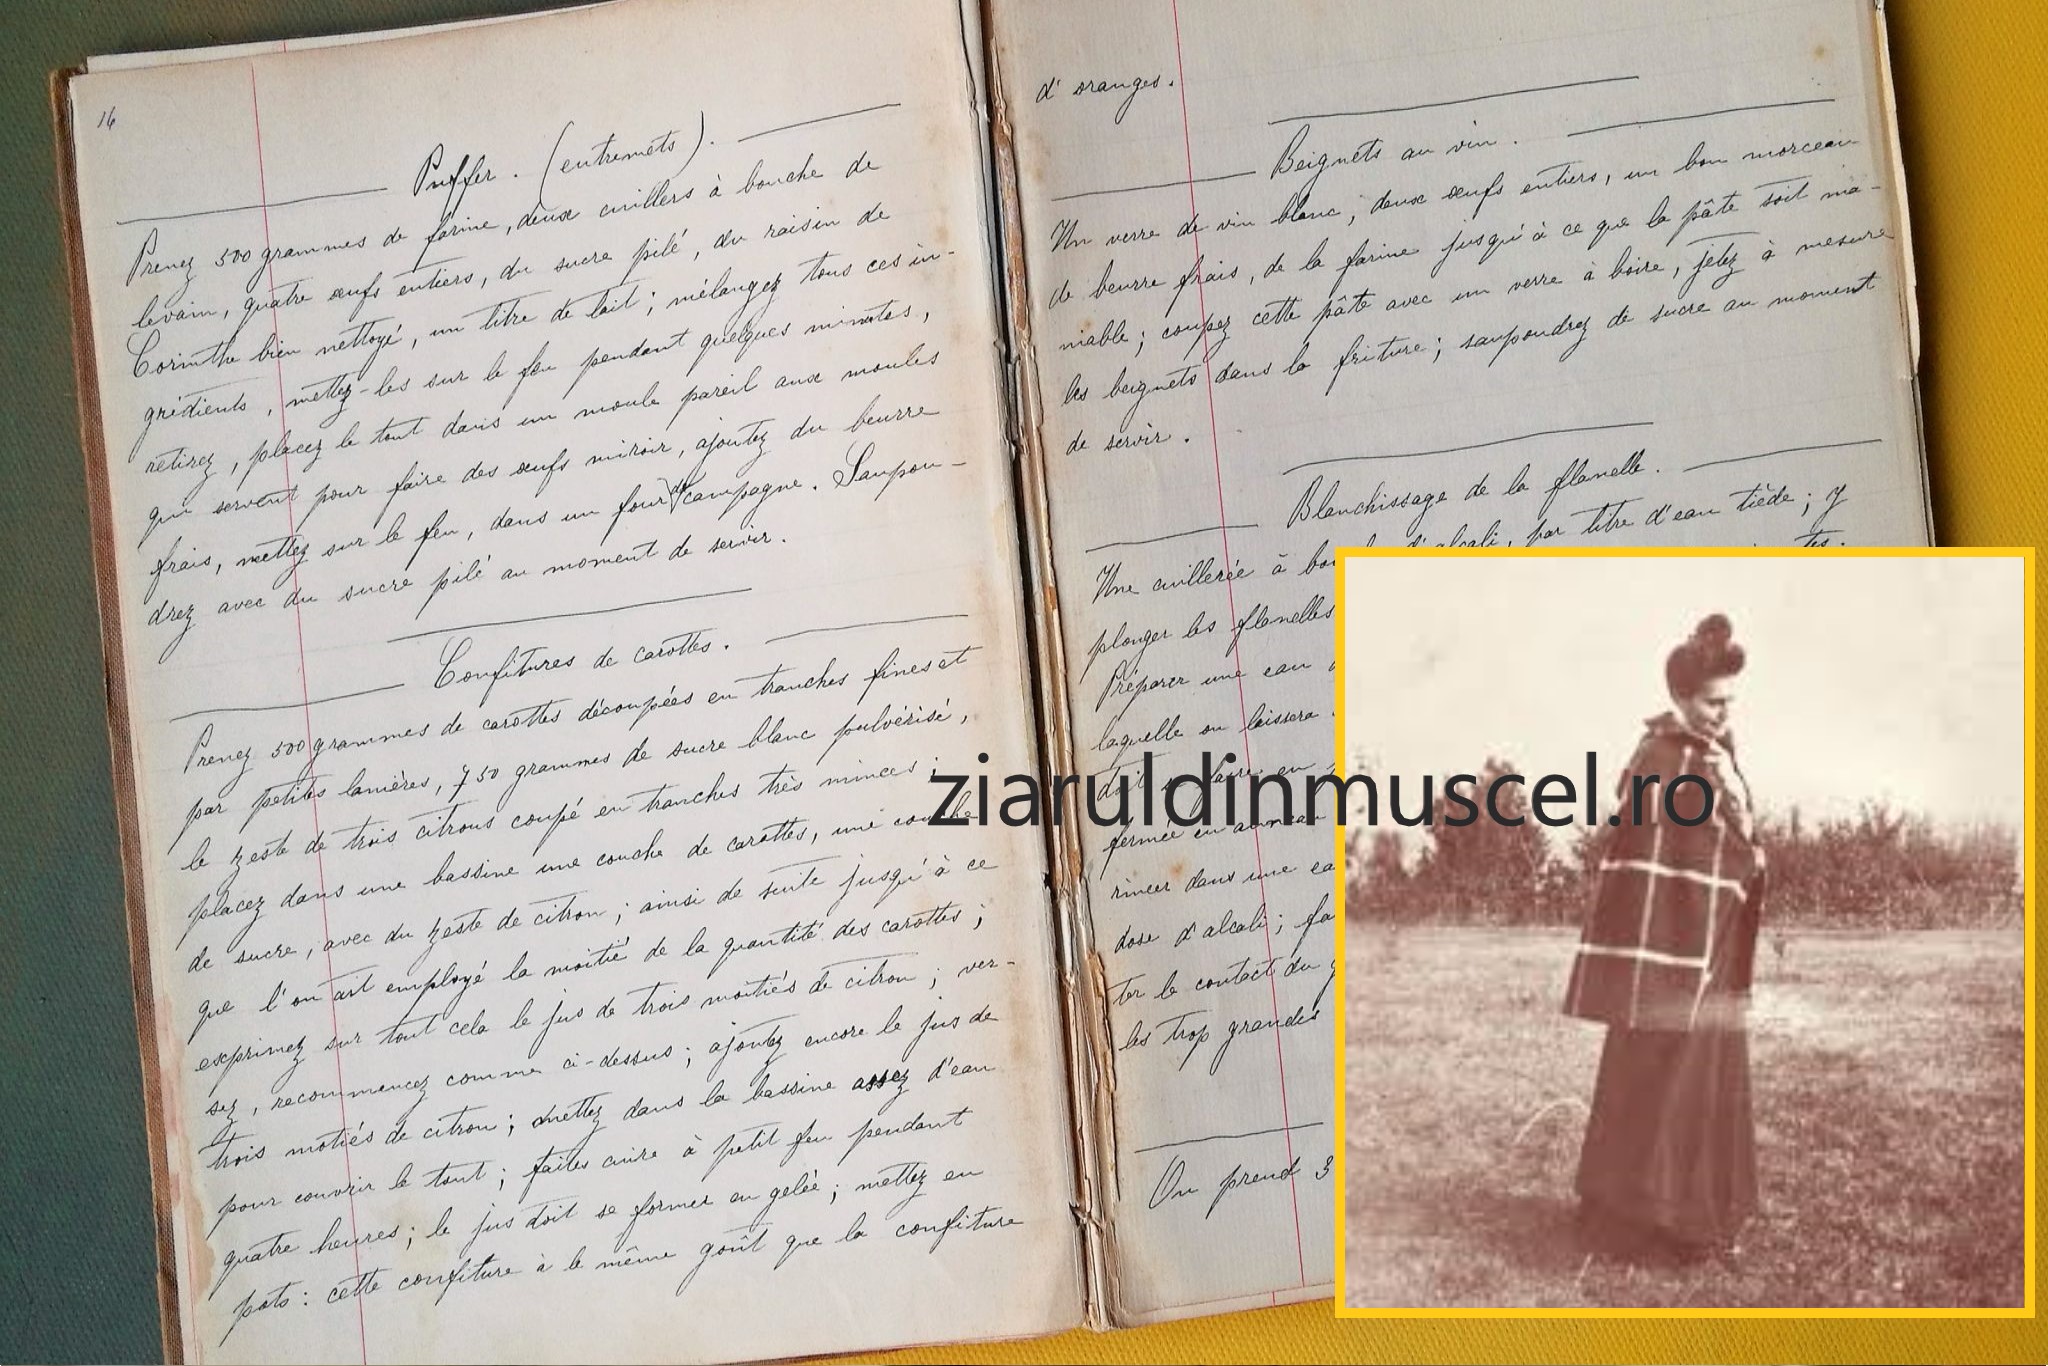 16
Puffer. (entremets).
Prenez 500 grammes de farine, deux cuillers à bouche de
levain, quatre œufs entiers, du sucre pilé, du raisin de
Corinthe bien nettoyé, un litre de lait; mélangez tous ces in-
grédients, mettez-les sur le feu pendant quelques minutes,
retirez, placez le tout dans un moule pareil aux moules
qui servent pour faire des œufs miroir, ajoutez du beurre
frais, mettez sur le feu, dans un four de campagne. Saupou-
drez avec du sucre pilé au moment de servir.
Confitures de carottes.
Prenez 500 grammes de carottes découpées en tranches fines et
par petites lanières, 750 grammes de sucre blanc pulvérisé,
le zeste de trois citrons coupé en tranches très minces;
placez dans une bassine une couche de carottes, une couche
de sucre, avec du zeste de citron; ainsi de suite jusqu'à ce
que l'on ait employé la moitié de la quantité des carottes;
exprimez sur tout cela le jus de trois moitiés de citron; ver-
sez, recommencez comme ci-dessus; ajoutez encore le jus de
trois motiés de citron; mettez dans la bassine assez d'eau
pour couvrir le tout; faites cuire à petit feu pendant
quatre heures; le jus doit se former en gelée; mettez en
pots: cette confiture à le même goût que la confiture
d'oranges.
Beignets au vin.
Un verre de vin blanc, deux œufs entiers, un bon morceau
de beurre frais, de la farine jusqu'à ce que la pâte soit ma-
niable; coupez cette pâte avec un verre à boire, jetez à mesure
les beignets dans la friture; saupoudrez de sucre au moment
de servir.
Blanchissage de la flanelle.
Une cuillerée à d'alcali, par litre d'eau tiède; y
plonger les flanelles
Préparer une eau
laquelle on laissera
doit se faire en
fermée en anneau
rincer dans une
dose d'alcali;
ter le contact du
les trop grandes
On prend 3
ziaruldinmuscel.ro